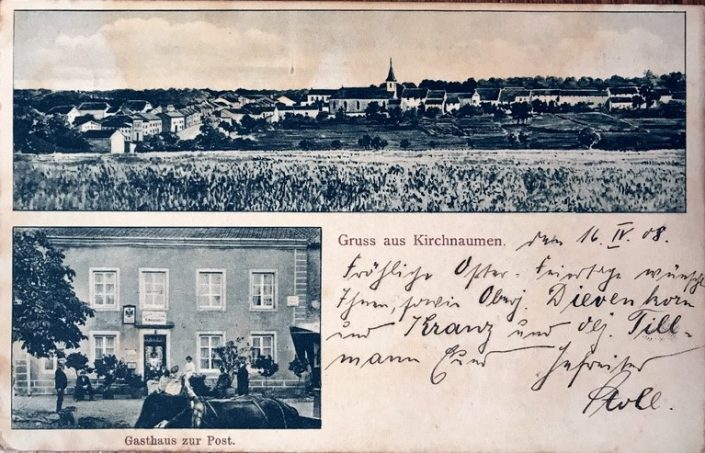 Gruss aus Kirchnaumen.
den 16. IV. 08.
Fröhliche Oster-Feiertage wünscht
Ihnen, sowie Oberj. Dievenkorn
und Kranz und Obj. Till-
mann Euer Gefreiter
Noll.
Gasthaus zur Post.